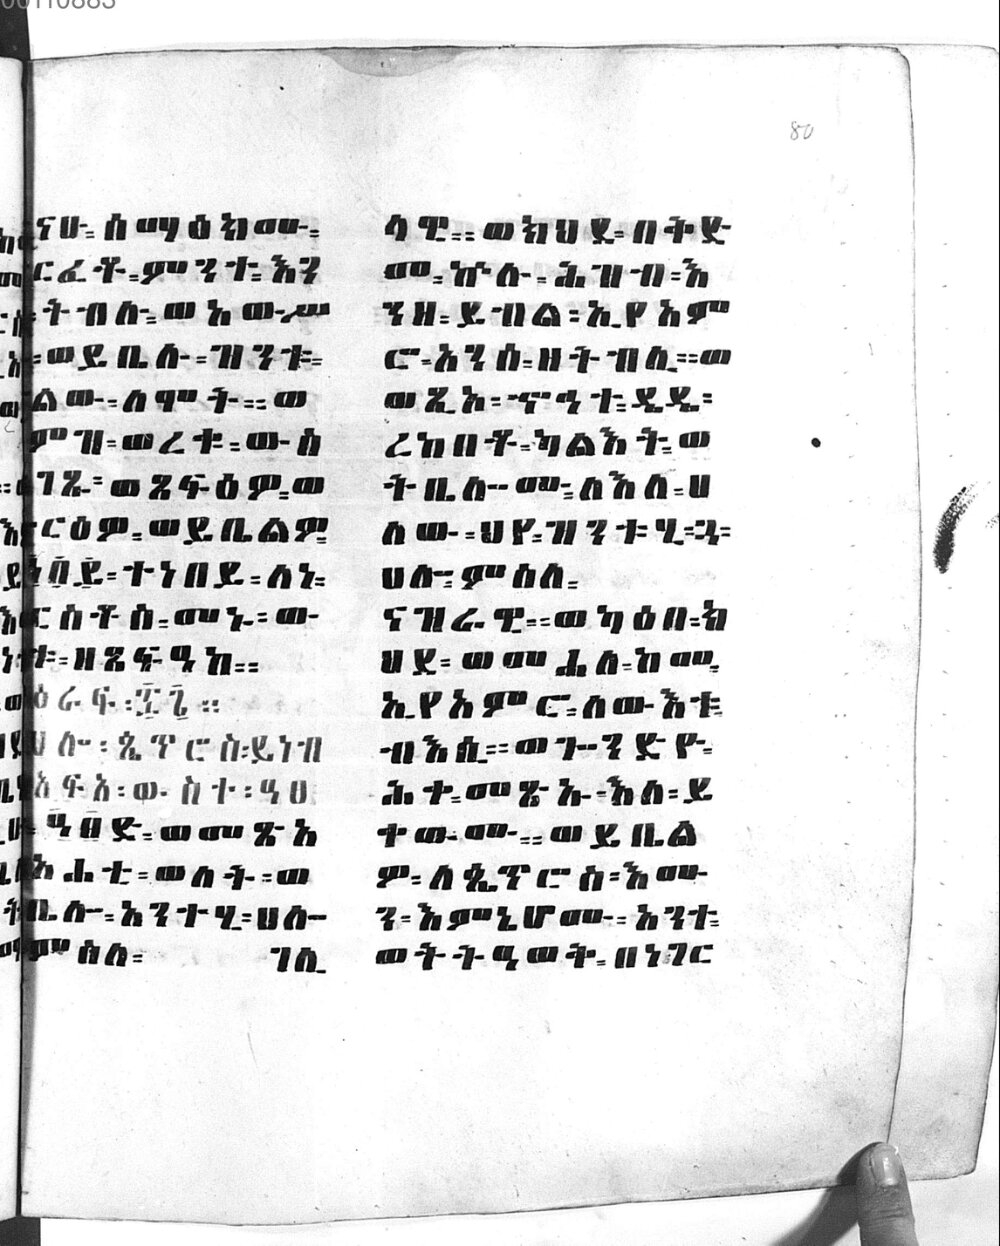 ናሁ፡ ሰማዕክሙ፡
ርፈቶ፡ ምንተ፡ እን
ትብሉ፡ ወአውሥ
፡ ወይቤሉ፡ ዝንቱ፡
ልው፡ ለሞት። ወ
ምዝ፡ ወረቁ፡ ውስ
ገጹ፡ ወጸፍዕዎ፡ ወ
ርዕዎ፡ ወይቤልዎ
ተነበይ፡ ለነ፡
ክርስቶስ፡ መኑ፡ ው
እቱ፡ ዘጸፍዓከ።
ዕራፍ፡ ፲፯።
ሀሎ፡ ጴጥሮስ፡ ይነብ
አፍአ፡ ውስተ፡ ዓፀ
ዓፀድ፡ ወመጽአ
አሐቲ፡ ወለት፡ ወ
ቤሎ፡ አንተሂ፡ ሀሎ
ምስለ፡ ገሊ
ላዊ። ወክህደ፡ በቅድ
መ፡ ኵሉ፡ ሕዝብ፡ እ
ንዘ፡ ይብል፡ ኢየአም
ር፡ አንሰ፡ ዘትብሊ። ወ
ወጺአ፡ ኆኅተ፡ ዴዴ፡
ረከበቶ፡ ካልእት፡ ወ
ትቤሎሙ፡ ለእለ፡ ሀ
ለው፡ ህየ፡ ዝንቱሂ፡ ጓ፡
ሀሎ፡ ምስለ፡
ናዝራዊ። ወካዕበ፡ ክ
ህደ፡ ወመሐለ፡ ከመ
ኢየአምሮ፡ ለውእቱ
ብእሲ። ወጐንድዮ፡
ሕተ፡ መጽኡ፡ እለ፡ ይ
ተውሙ። ወይቤል
ዎ፡ ለጴጥሮስ፡ እሙ
ን፡ እምኔሆሙ፡ አንተ
ወትትዓወቅ፡ በነገር